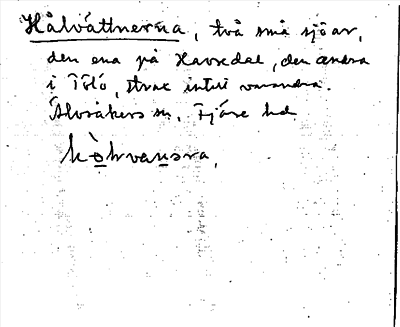 Hålvättnerna, två små sjöar,
den ena på Havredal, den andra
i Tölö, strax intill varandra.
Älvsåkers sn, Fjäre hd